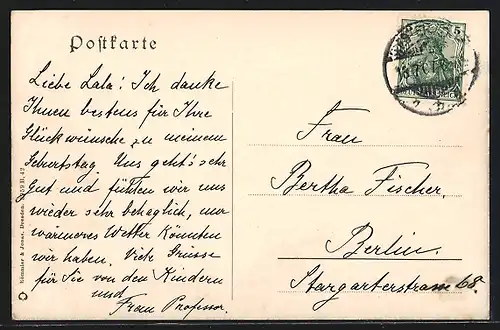 Postkarte
Liebe Lala! Ich danke
Ihnen bestens für Ihre
Glückwünsche zu meinem
Geburtstag. Uns geht's sehr
Gut und fühlen wir uns
wieder sehr behaglich, nur
wärmeres Wetter könnten
wir haben. Viele Grüsse
für Sie von den Kindern
und
Frau Professor.
Frau
Bertha Fischer,
Berlin.
Stargarterstrasse 68.
Römmler & Jonas, Dresden.
5